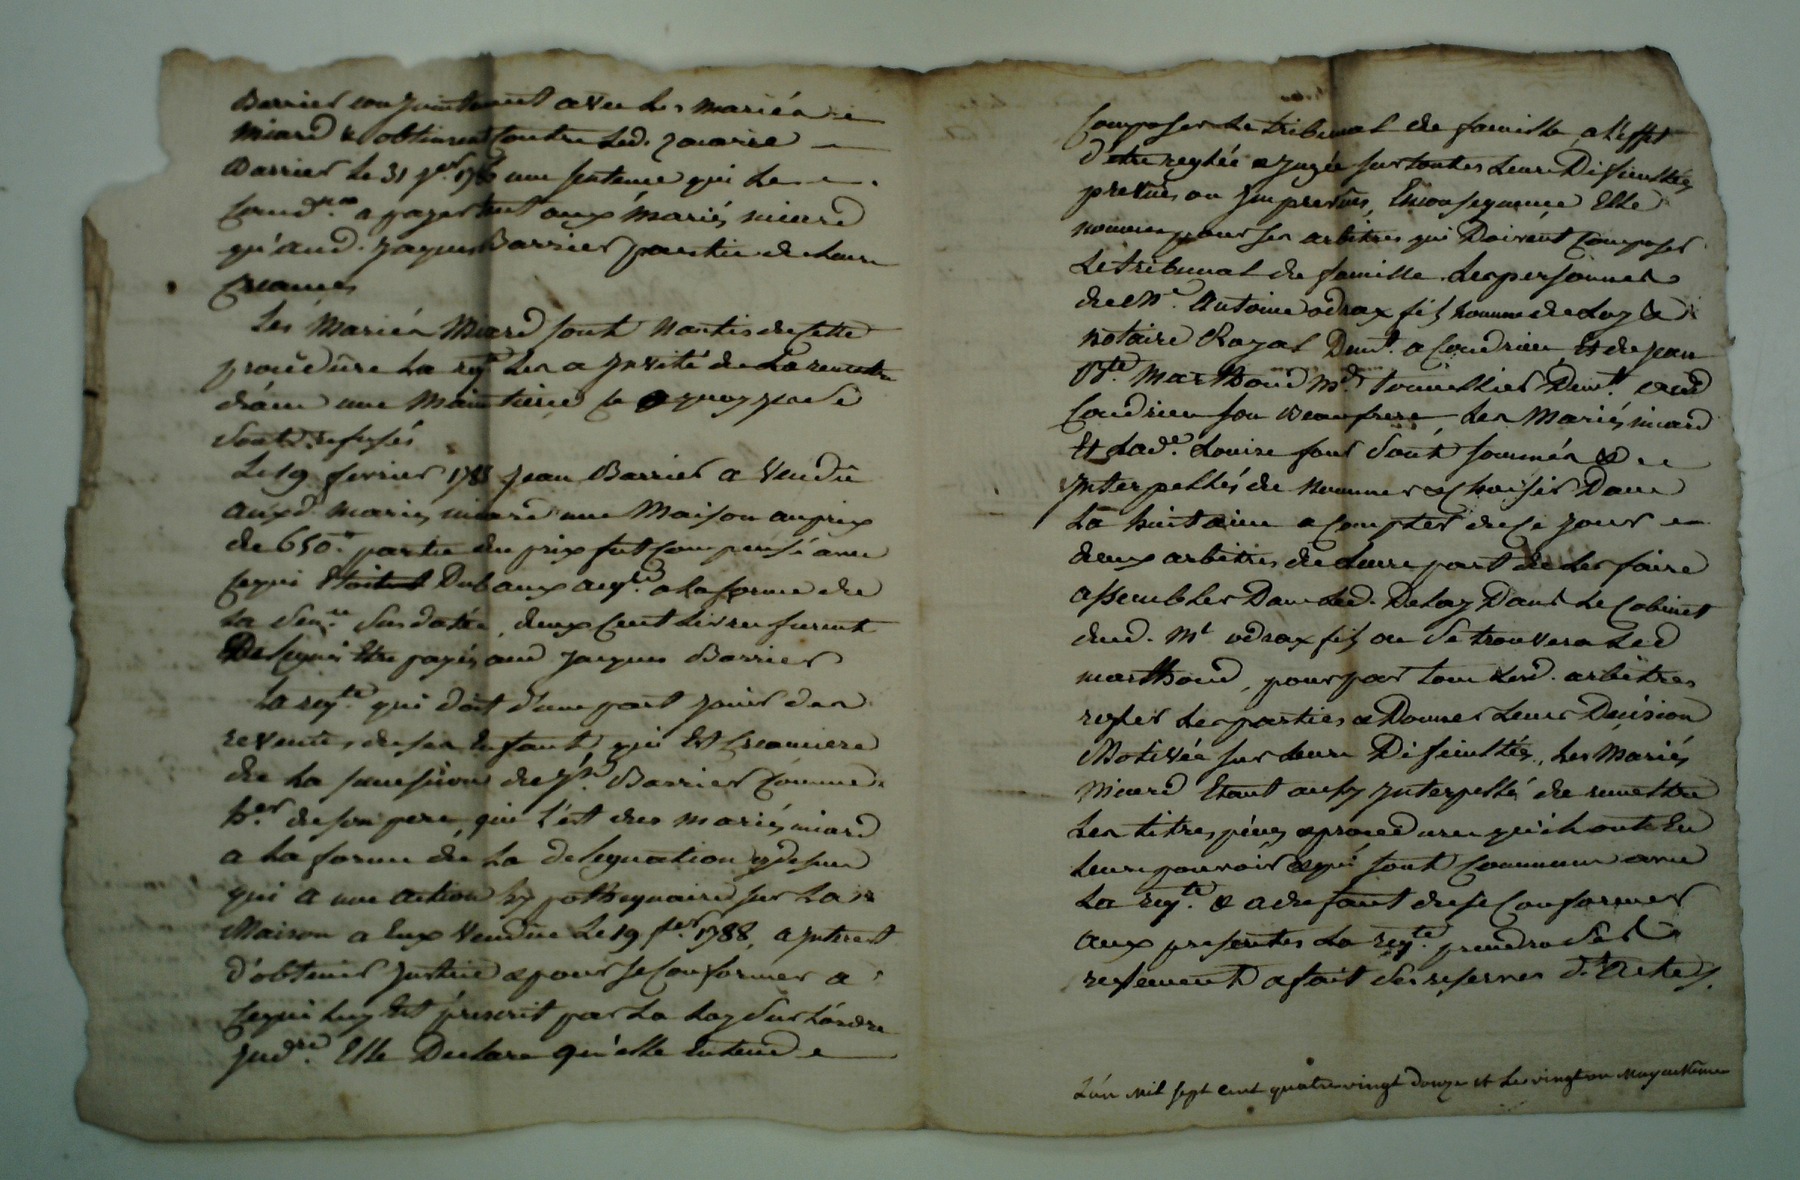 Barrier conjointement avec les mariés
miard & obtinrent contre led. zacarie
Barrier le 31 une sentence qui le
cond.na a payer tant aux mariés miard
qu'aud. jaques Barrier partie de leur
creances
Les Mariés Miard sont Nantis de Cette
procédure La req.te les a jnvité de La remettre
dans une main tierce ce a quoy jls se
sont refusés
Le 19 fevrier 1788 jean Barrier a Vendû
auxd. mariés miard une Maison au prix
de 650.# partie du prix fut compensé avec
ce qui Etoit dub aux acq.rs a la forme de
la Sen.ce Susdatée, deux cent livres furent
Delegués Etre payés aud jacques Barrier
La req.te qui doit d'une part jouir des
revenus de ses Enfants, qui Est Creanciere
de la pension de Barrier comme
h.er de son pere, qui l'est des mariés miard
a la forme de la delegation
qui a une action hypothequaire sur La
Maison a Eux Vendue Le 19 f.er 1788, a jnterest
d'obtenir justice & pour se conformer a
ce qui luy Est prescrit par la loy sur L'ordre
jud.re Elle Declare qu'elle Entend
Composer le tribunal de famille, a l'effet
d'être reglée & jugée sur toutes leurs Dificultés
prevûes ou jmprevûes, En consequence Elle
nomme pour ses arbitres qui Doivent Composer
Le tribunal de famille les personnes
de M.e Antoine odrax fils homme de Loy &
notaire Royal Dem.t a Condrieu Et de jean
B.te Marthoud m.d Dem.t aud
Condrieu son Beaufrere Les Mariés miard
Et lad.e Louise four sont sommés &
jnterpellés de nommer & Choisir Dans
La huitaine a compter de ce jour
deux arbitres de leur part de les faire
assembler Dans led. Delay Dans le Cabinet
dud. M.e odrax fils ou se trouvera led
marthoud, pour par tous lesd. arbitres
regler les parties & Donner leur Decision
Motivée sur leurs Dificultés, les Mariés
Miard Etant aussy jnterpellé de remettre
les titres pieces & procedures qu'ils ont En
leur pouvoir & qui sont communs avec
La req.te & a defaut de se Conformer
aux presentes La req.te prendra
reglement & fait ses reserves D. Acte
L'an mil sept cent quatre vingt douze et le vingt un may